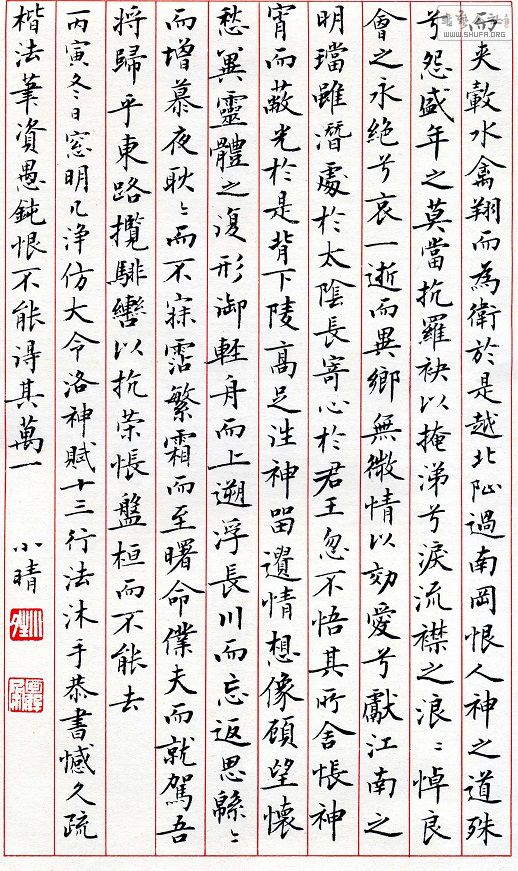 而夾轂水禽翔而為衛於是越北阯過南岡恨人神之道殊
兮怨盛年之莫當抗羅袂以掩涕兮淚流襟之浪〻悼良
會之永絕兮哀一逝而異鄉無微情以効愛兮獻江南之
明璫雖潛處於太陰長寄心於君王忽不悟其所舍悵神
宵而蔽光於是背下陵高足往神留遺情想像顧望懷
愁冀靈體之復形御輕舟而上遡浮長川而忘返思緜〻
而增慕夜耿〻而不寐霑繁霜而至曙命僕夫而就駕吾
將歸乎東路攬騑轡以抗策悵盤桓而不能去
丙寅冬日窓明几浄仿大令洛神賦十三行法沐手恭書憾久疏
楷法筆資愚鈍恨不能得其萬一 小晴
WWW.SHUFA.ORG